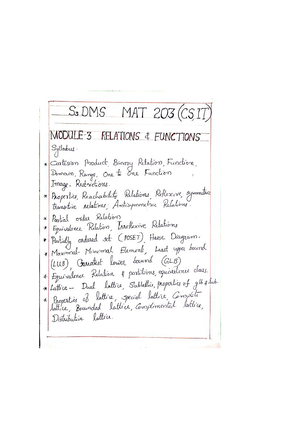 S₂DMS MAT 203 (CS, IT)
MODULE-3 RELATIONS & FUNCTIONS
Syllabus
Cartesian Product, Binary Relation, Function,
Domain, Range, One to One Function
Image, Restrictions.
* Properties, Reachability Relations, Reflexive, symmetric,
transitive relations, Antisymmetric Relations
* Partial order Relations
* Equivalence Relation, Irreflexive Relations
* Partially ordered set (POSET), Hasse Diagram.
* Maximal-Minimal Element, least upper bound
(LUB), Greatest lower bound (GLB)
* Equivalence Relation & partitions, equivalence class.
* Lattice - Dual lattice, Sublattice, properties of glb & lub
* Properties of lattice, special lattice, Complete
lattice, Bounded lattice, Complemented lattice,
Distributive lattice.